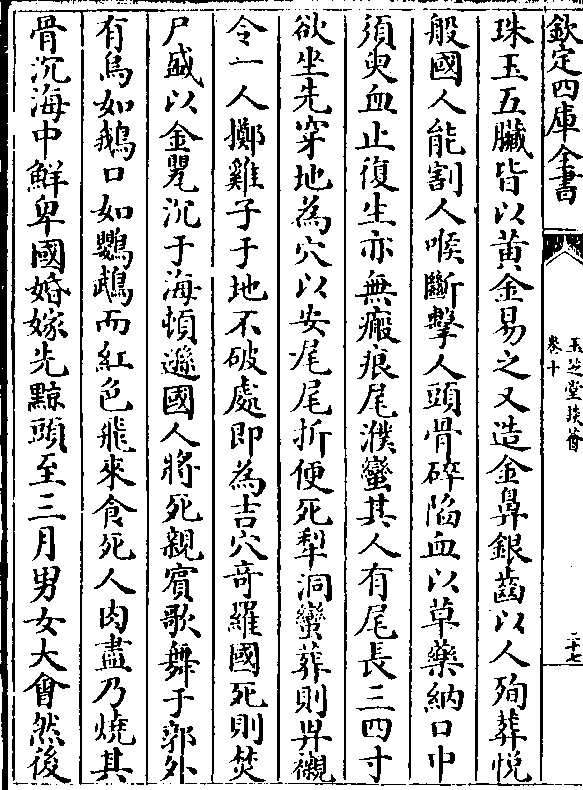 欽定四庫全書
玉芝堂談薈
卷十
二十七
珠玉五臟皆以黃金易之又造金鼻銀齒以人殉葬悅
般國人能割人喉斷擊人頭骨碎陷血以草藥納口中
須臾血止復生亦無瘢痕尾濮蠻其人有尾長三四寸
欲坐先穿地為穴以安尾尾折便死犁洞蠻葬則舁襯
令一人擲雞子于地不破處即為吉穴竒羅國死則焚
尸盛以金甖沉于海頓遜國人將死親賓歌舞于郭外
有鳥如鵝口如鸚鵡而紅色飛來食死人肉盡乃燒其
骨沉海中鮮卑國婚嫁先黥頭至三月男女大會然後